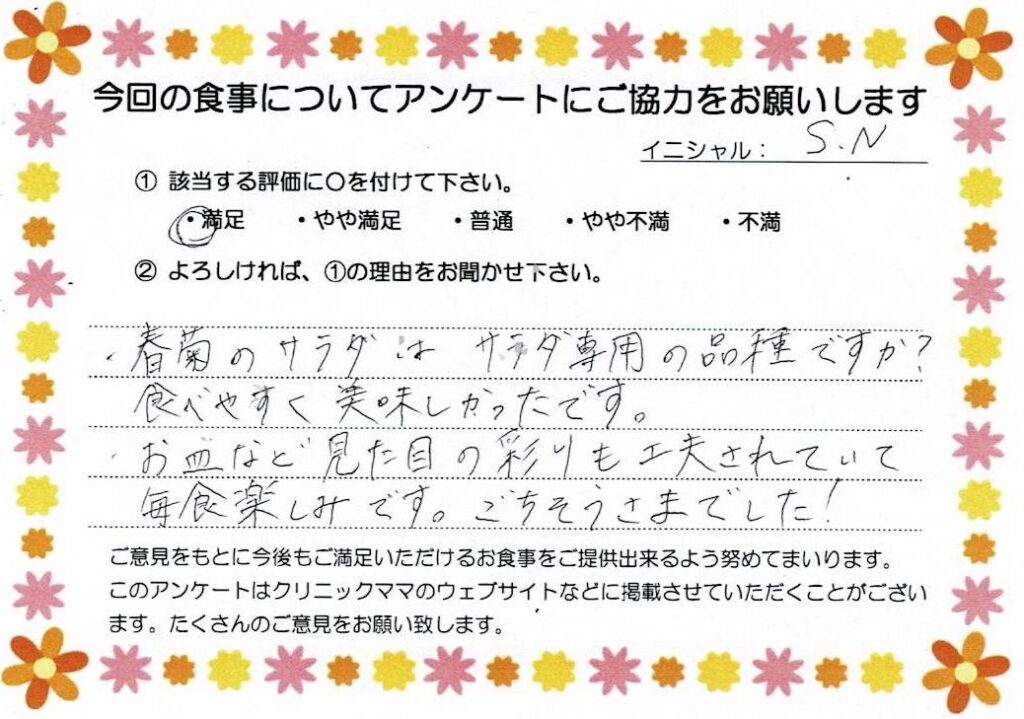 今回の食事についてアンケートにご協力をお願いします
イニシャル： S.N
① 該当する評価に〇を付けて下さい。
・満足 ・やや満足 ・普通 ・やや不満 ・不満
② よろしければ、①の理由をお聞かせ下さい。
・春菊のサラダは サラダ専用の品種ですか？
食べやすく美味しかったです。
・お皿など見た目の彩りも工夫されていて
毎食楽しみです。ごちそうさまでした！
ご意見をもとに今後もご満足いただけるお食事をご提供出来るよう努めてまいります。
このアンケートはクリニックママのウェブサイトなどに掲載させていただくことがござい
ます。たくさんのご意見をお願い致します。